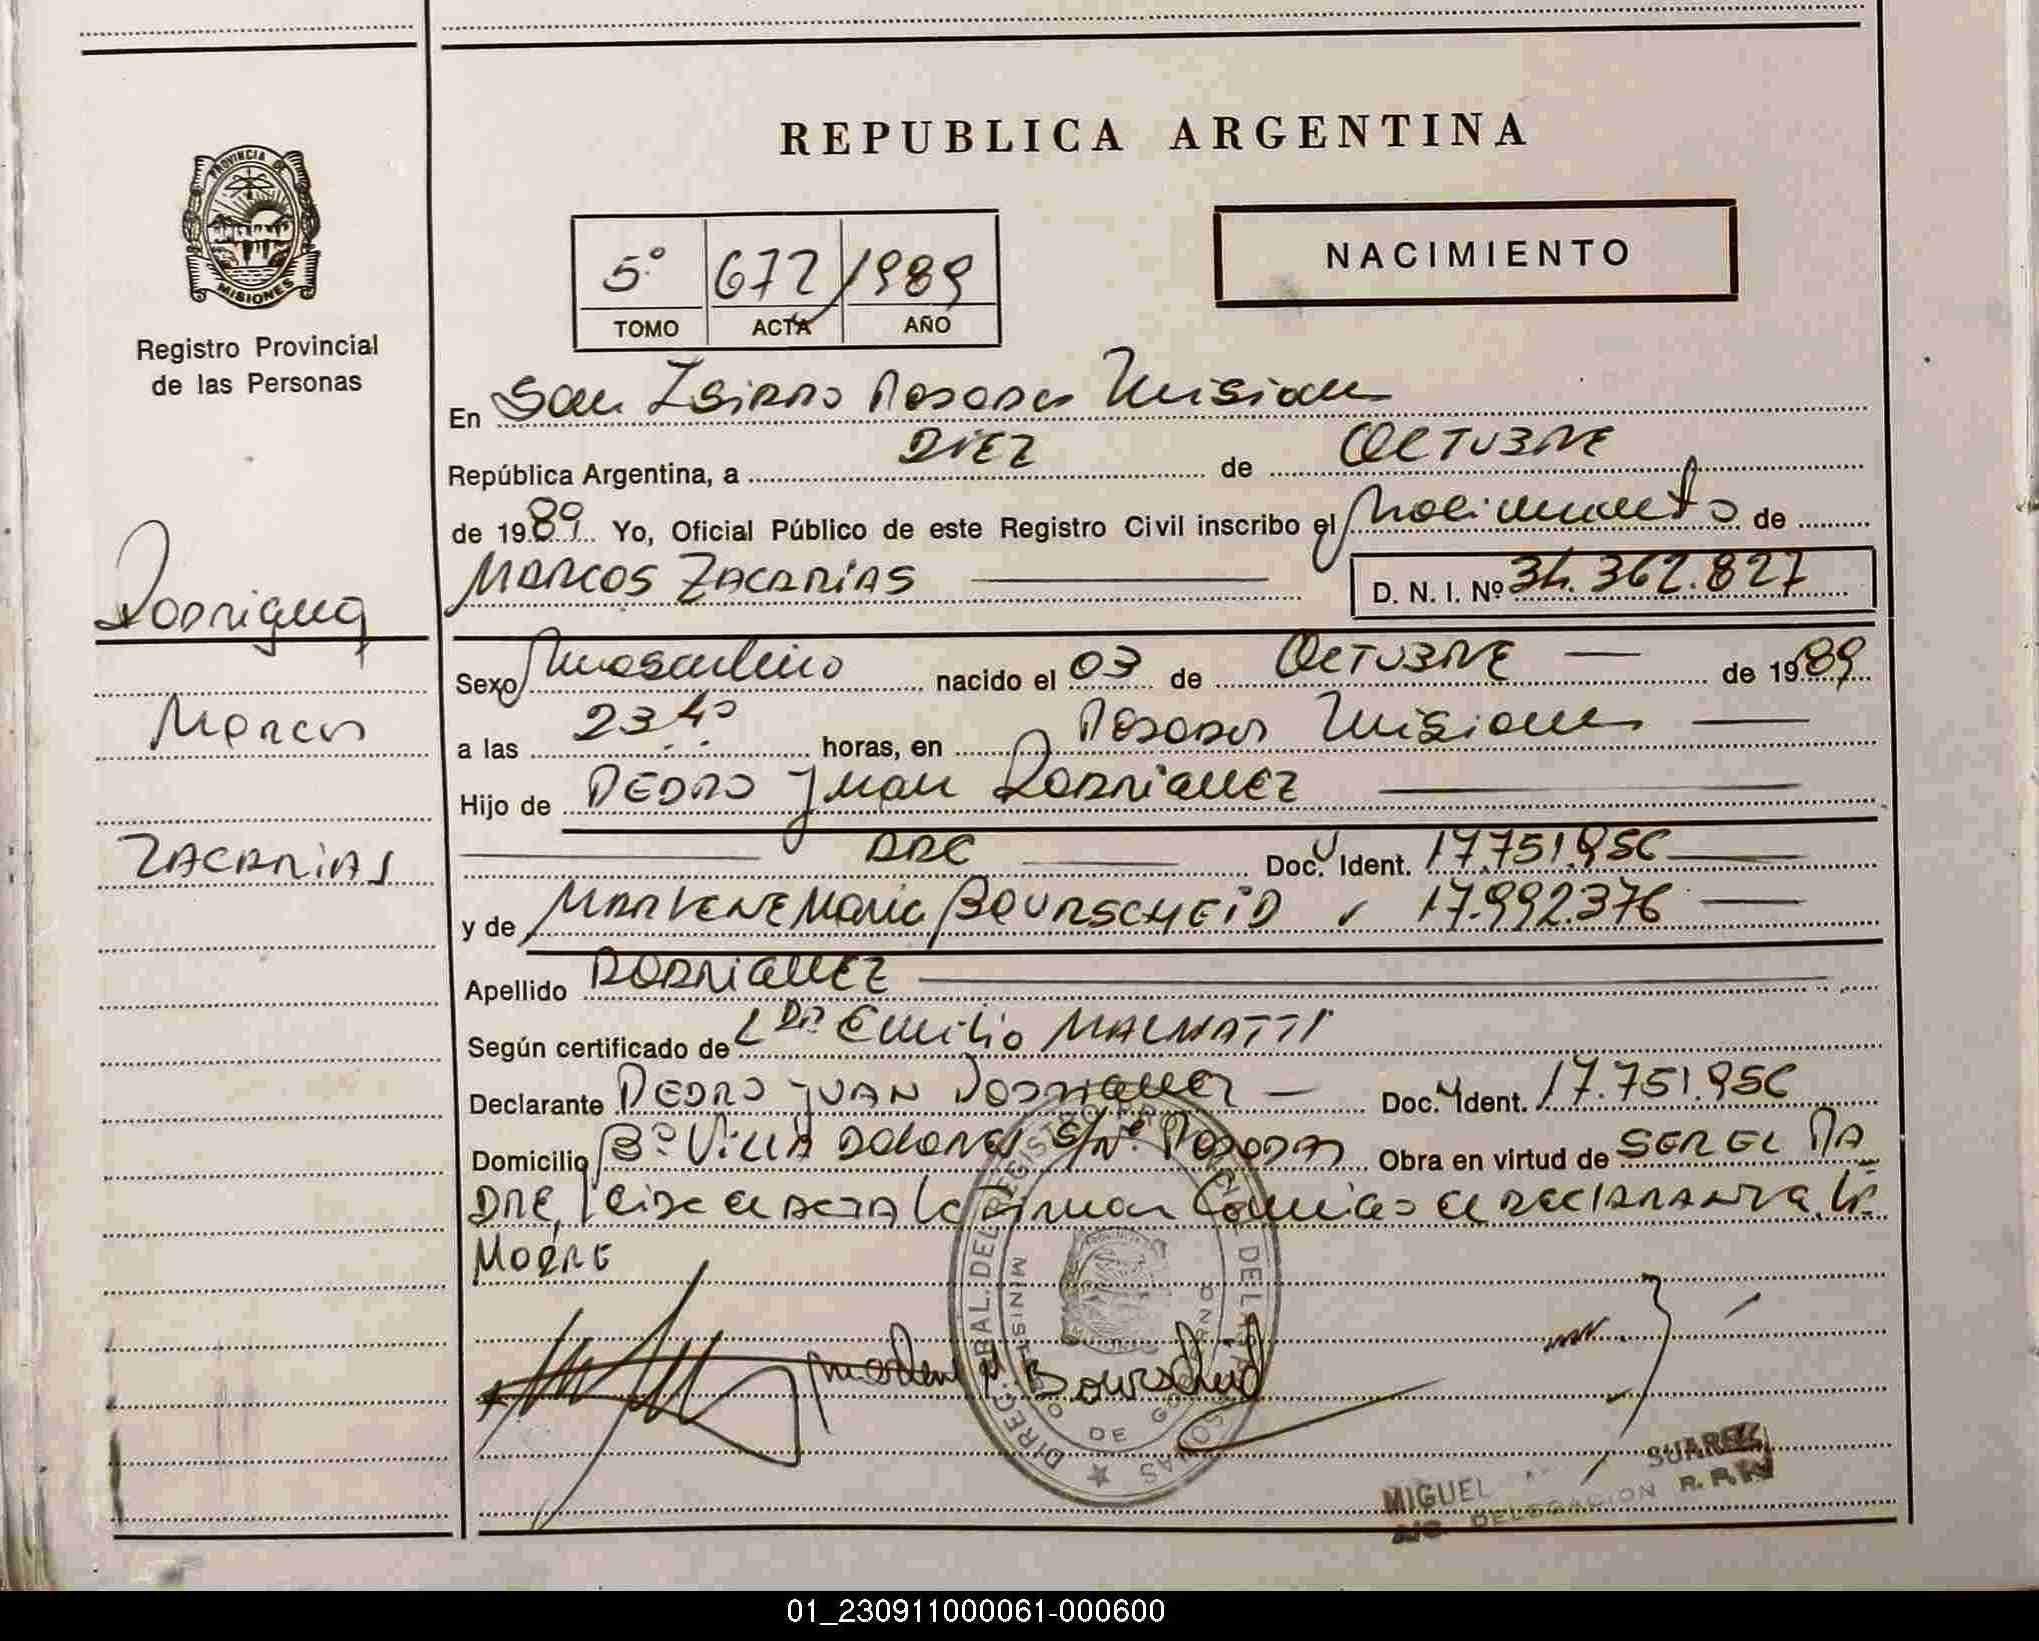 REPUBLICA ARGENTINA
PROVINCIA DE
MISIONES
Registro Provincial
de las Personas
NACIMIENTO
5º 672/1989
TOMO ACTA AÑO
En San Isidro Posadas Misiones
República Argentina, a DIEZ de OCTUBRE
de 1989 Yo, Oficial Público de este Registro Civil inscribo el Nacimiento de
MARCOS ZACARIAS D. N. I. Nº 34.362.827
Rodriguez
Marcos
ZACARIAS
Sexo Masculino nacido el 03 de OCTUBRE de 1989
a las 23 40 horas, en Posadas Misiones
Hijo de PEDRO Juan RODRIGUEZ
ARG Doc. Ident. 17.751.956
y de MARLENE Maria BOURSCHEID 17.992.376
Apellido RODRIGUEZ
Según certificado de L Dr. Emilio MALNATTI
Declarante PEDRO JUAN Rodriguez Doc. Ident. 17.751.956
Domicilio Bº VILLA DOLORES S/Nº POSADAS Obra en virtud de SER EL PA
DRE, leida el acta la firman Conmigo el DECLARANTE y la
MADRE
Marlene M Bourscheid
DIREC. GRAL. DEL REGISTRO PROVINCIAL DE LAS PERSONAS
MINISTERIO DE GOBIERNO
MIGUEL SUAREZ
DELEGACION R. P. P.
01_230911000061-000600